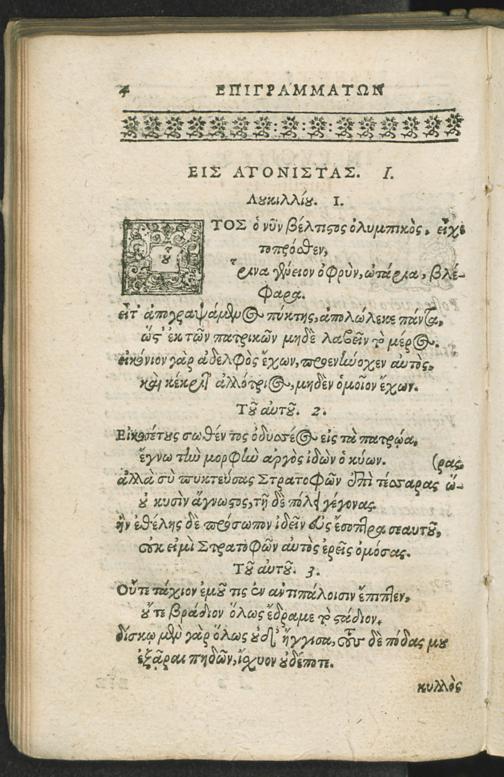 4 ΕΠΙΓΡΑΜΜΑΤΩΝ
ΕΙΣ ΑΓΟΝΙΣΤΑΣ. I.
Λουκιλλίου. 1.
ΟΥΤΟΣ ὁ νῦν βέλτιστος ὀλυμπικὸς, εἶχε
τοπρόσθεν,
ῥῖνα γένειον ὀφρὺν, ὠτάρια, βλέ-
φαρα.
εἶτ' ἀπογραψάμενος πύκτης, ἀπολώλεκε πάντα,
ὥς' ἐκ τῶν πατρικῶν μηδὲ λαβεῖν τὸ μέρος.
εἰκόνιον γὰρ ἀδελφὸς ἔχων, προενήνοχεν αὐτὸς,
καὶ κέκριτ' ἀλλότριος, μηδὲν ὁμοῖον ἔχων.
Τοῦ αὐτοῦ. 2.
Εἰκοσέτους σωθέντος ὀδυσσέος εἰς τὰ πατρῷα,
ἔγνω τὴν μορφὴν αργὸς ἰδὼν ὁ κύων.
ἀλλὰ σὺ πυκτεύσας Στρατοφῶν ἐπὶ τέσσαρας ὥ- (ρας,
οὐ κυσὶν ἄγνωστος, τῇ δὲ πόλει γέγονας.
ἢν ἐθέλῃς δὲ πρόσωπον ἰδεῖν εἰς ἔσοπτρα σεαυτοῦ,
οὐκ εἰμὶ Στρατοφῶν αὐτὸς ἐρεῖς ὀμόσας.
Τοῦ αὐτοῦ. 3.
Οὔτε τάχιον ἐμοῦ τις ἐν ἀντιπάλοισιν ἔπιπτεν,
οὔτε βράδιον ὅλως ἔδραμε τὸ στάδιον.
δίσκῳ μὲν γὰρ ὅλως οὐδ' ἤγγισα, τοὺς δὲ πόδας μου
ἐξᾶραι πηδῶν, ἴσχυον οὐδέποτε.
κυλλὸς